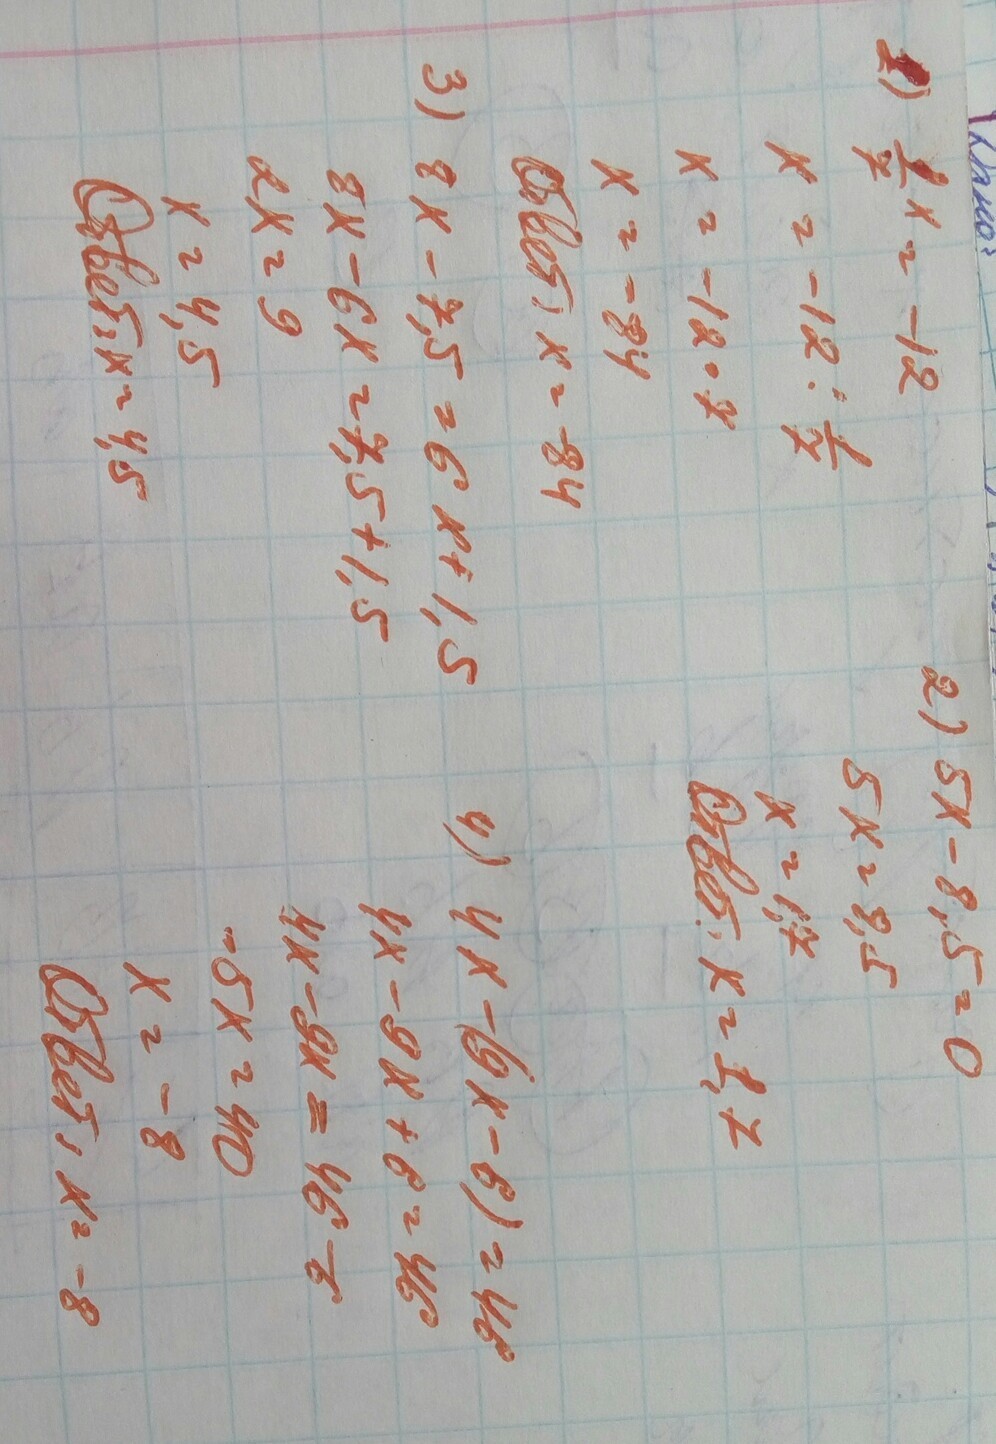 1) 1/7 x = -12
x = -12 : 1/7
x = -12 · 7
x = -84
Ответ: x = -84
2) 5x - 8,5 = 0
5x = 8,5
x = 1,7
Ответ: x = 1,7
3) 8x - 7,5 = 6x + 1,5
8x - 6x = 7,5 + 1,5
2x = 9
x = 4,5
Ответ: x = 4,5
4) 4x - (9x - 6) = 46
4x - 9x + 6 = 46
4x - 9x = 46 - 6
-5x = 40
x = -8
Ответ: x = -8